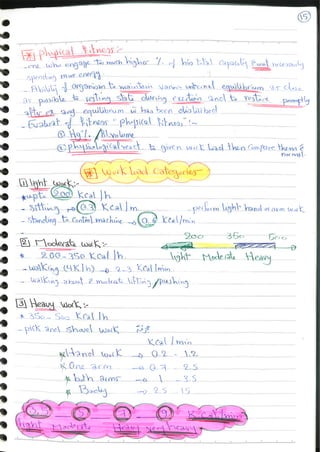 15
* Physical Fitness:-
-one who engage to much higher % of his total capacity & not necessarily
spending more energy
- Ability of organism to maintain various internal equilibrium as close
as possible to resting state during exertion and to restore promptly
after ex any equilibrium
- Evaluat of fitness "physical fitness":-
① Hg % / Bl. volume
② physiological react. to given work load then compare them to
normal.
* Work load Categories
1 light work:-
* up to 200 Kcal/h
- Sitting → 0.3 Kcal/m - perform light hand or arm work
- Standing to Control machine → 0.6 Kcal/min
200 350 500
light Moderate Heavy
2 Moderate work:-
* 200-350 Kcal/h
- walking (4K/h) → 2-3 Kcal/min
- walking about & moderate lifting/pushing
3 Heavy work:-
* 350-500 Kcal/h
- pick and shovel work
Kcal/min
* Hand work → 0.2 - 1.2
* One arm → 0.7 - 2.5
* both arms → 1 - 3.5
* Body → 2.5 - 15
5 7 9 Kcal/min
light Moderate Heavy very heavy